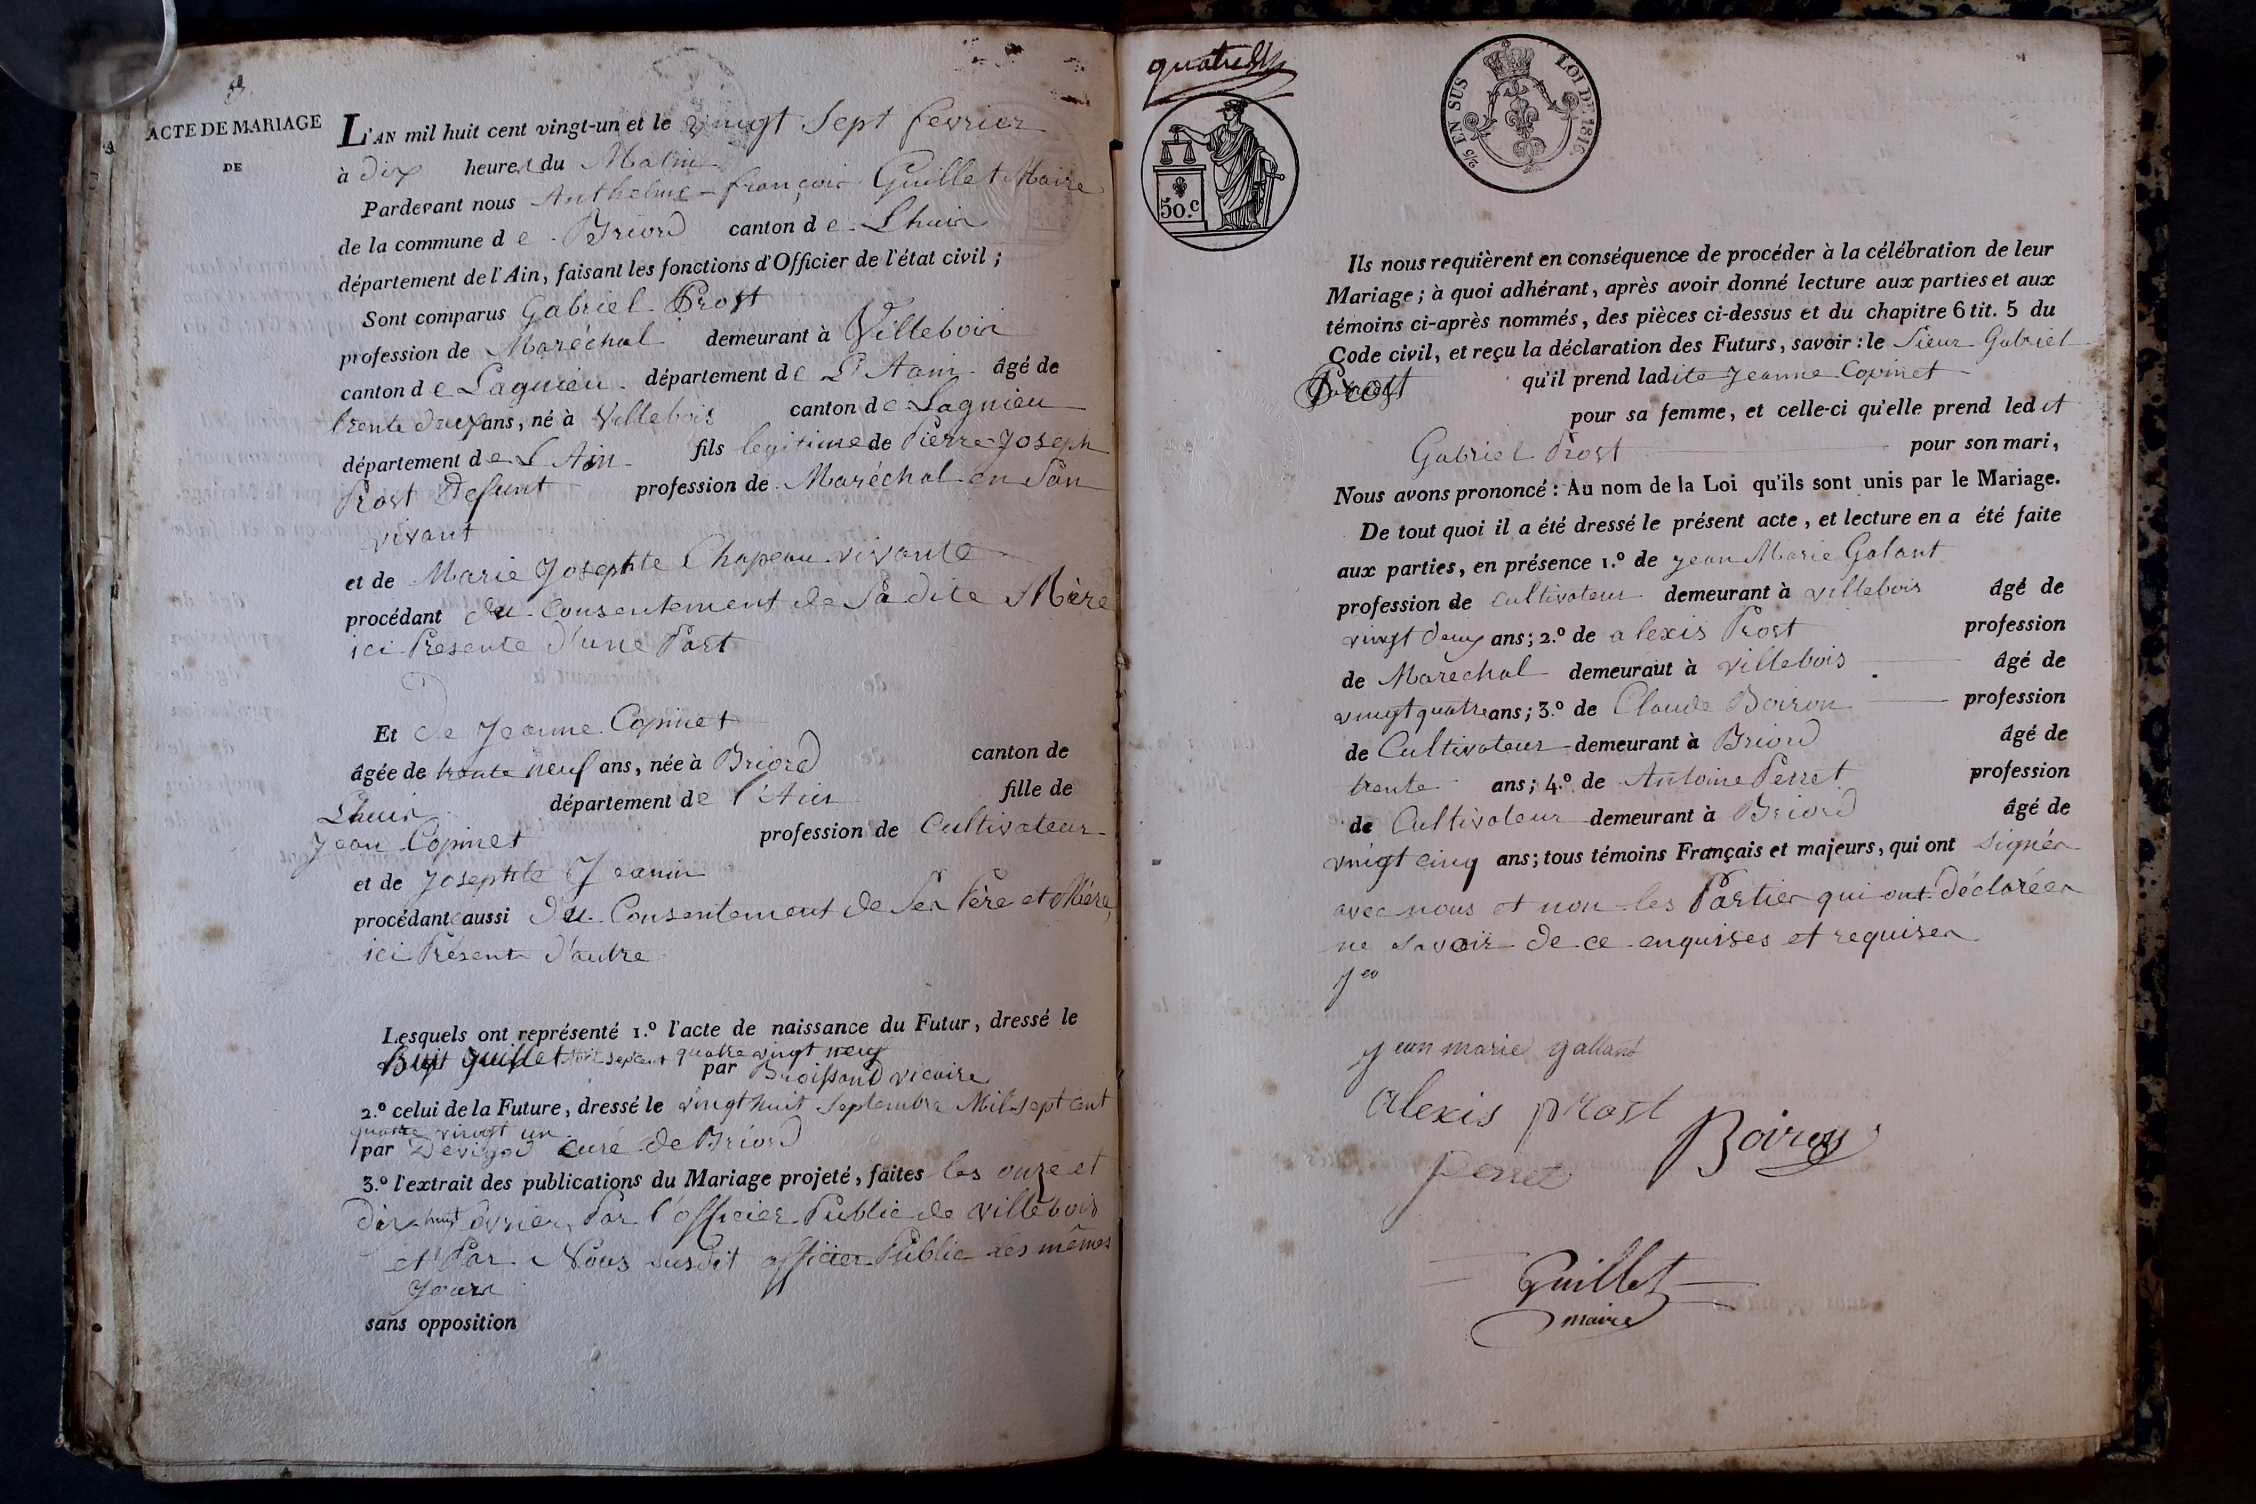 ACTE DE MARIAGE
DE
L'AN mil huit cent vingt-un et le vingt Sept fevrier
à dix heures du Matin
Pardevant nous Anthelme françois Guillet Maire
de la commune de Briord canton de Lhuis
département de l'Ain, faisant les fonctions d'Officier de l'état civil ;
Sont comparus Gabriel Prost
profession de Maréchal demeurant à Villebois
canton de Lagnieu département de L'Ain âgé de
trente deux ans, né à Villebois canton de Lagnieu
département de L'Ain fils legitime de Pierre Joseph
Prost Defunt profession de Maréchal en Son
vivant
et de Marie Josephte Chapeau vivante
procédant du Consentement de Sa dite Mère
ici Presente d'une Part
Et de Jeanne Copinet
âgée de trente neuf ans, née à Briord canton de
Lhuis département de l'Ain fille de
Jean Copinet profession de Cultivateur
et de Josephte Jeanin
procédant aussi du Consentement de Ses Père et Mère
ici Présents d'autre
Lesquels ont représenté 1.º l'acte de naissance du Futur, dressé le
Huit Juillet sept cent quatre vingt neuf
par vicaire
2.º celui de la Future, dressé le vingt huit Septembre Mil sept cent
quatre vingt un
par curé de Briord
3.º l'extrait des publications du Mariage projeté, faites les onze et
dix huit Par l'officier Public de Villebois
et Par Nous susdit officier Public les mêmes
Jours
sans opposition
quatre
50.c
EN SUS
LOI DE 1816.
Ils nous requièrent en conséquence de procéder à la célébration de leur
Mariage ; à quoi adhérant, après avoir donné lecture aux parties et aux
témoins ci-après nommés, des pièces ci-dessus et du chapitre 6 tit. 5 du
Code civil, et reçu la déclaration des Futurs, savoir : le Sieur Gabriel
Prost qu'il prend ladite Jeanne Copinet
pour sa femme, et celle-ci qu'elle prend ledit
Gabriel Prost pour son mari,
Nous avons prononcé : Au nom de la Loi qu'ils sont unis par le Mariage.
De tout quoi il a été dressé le présent acte, et lecture en a été faite
aux parties, en présence 1.º de Jean Marie Galant
profession de Cultivateur demeurant à Villebois âgé de
vingt deux ans ; 2.º de alexis Prost profession
de Marechal demeurant à Villebois âgé de
vingt quatre ans ; 3.º de Claude Boiron profession
de Cultivateur demeurant à Briord âgé de
trente ans ; 4.º de Antoine Perret profession
de Cultivateur demeurant à Briord âgé de
vingt cinq ans ; tous témoins Français et majeurs, qui ont Signés
avec nous et non les Parties qui ont Déclarées
ne savoir de ce enquises et requises
jean marie galland
alexis prost
Boiron
perret
Guillet
maire